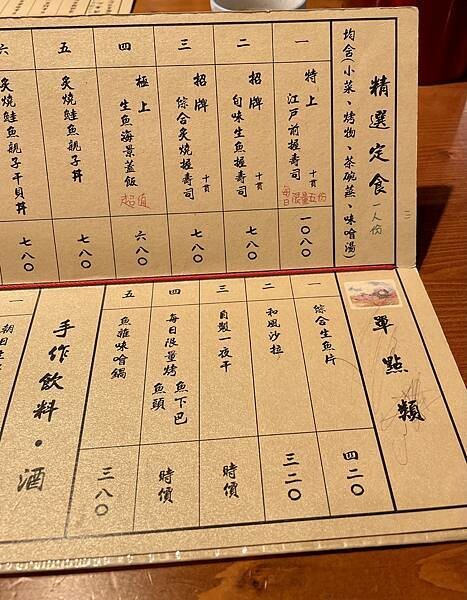 精選定食 一人份
均含(小菜、烤物、茶碗蒸、味噌湯)
一 特上 江戶前握壽司 十貫 每日限量五份 一〇八〇
二 招牌 旬味生魚握壽司 十貫 七八〇
三 招牌 綜合炙燒握壽司 十貫 七八〇
四 極上 生魚海景蓋飯 超值 六八〇
五 炙燒鮭魚親子丼 七八〇
六 炙燒鮭魚親子干貝丼 七八〇
單點類
一 綜合生魚片 四二〇
二 和風沙拉 三二〇
三 自製一夜干 時價
四 每日限量烤 魚下巴 魚頭 時價
五 魚雜味噌鍋 三八〇
手作飲料·酒
朝日